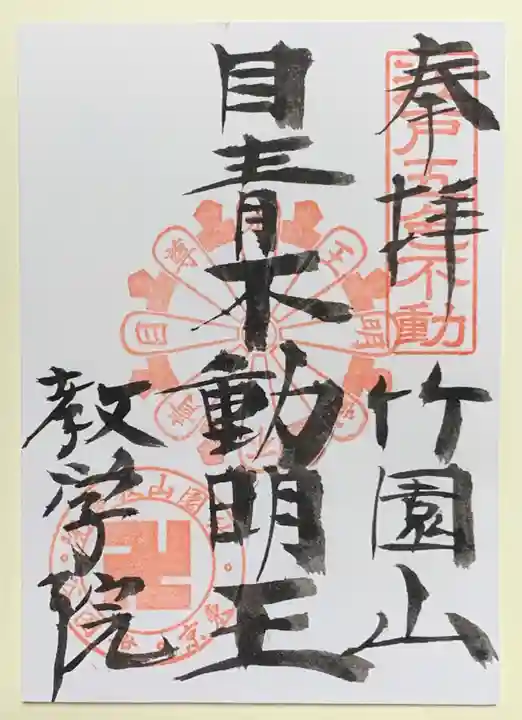 奉拝
竹園山
江戸五色不動
目青不動明王
教学院